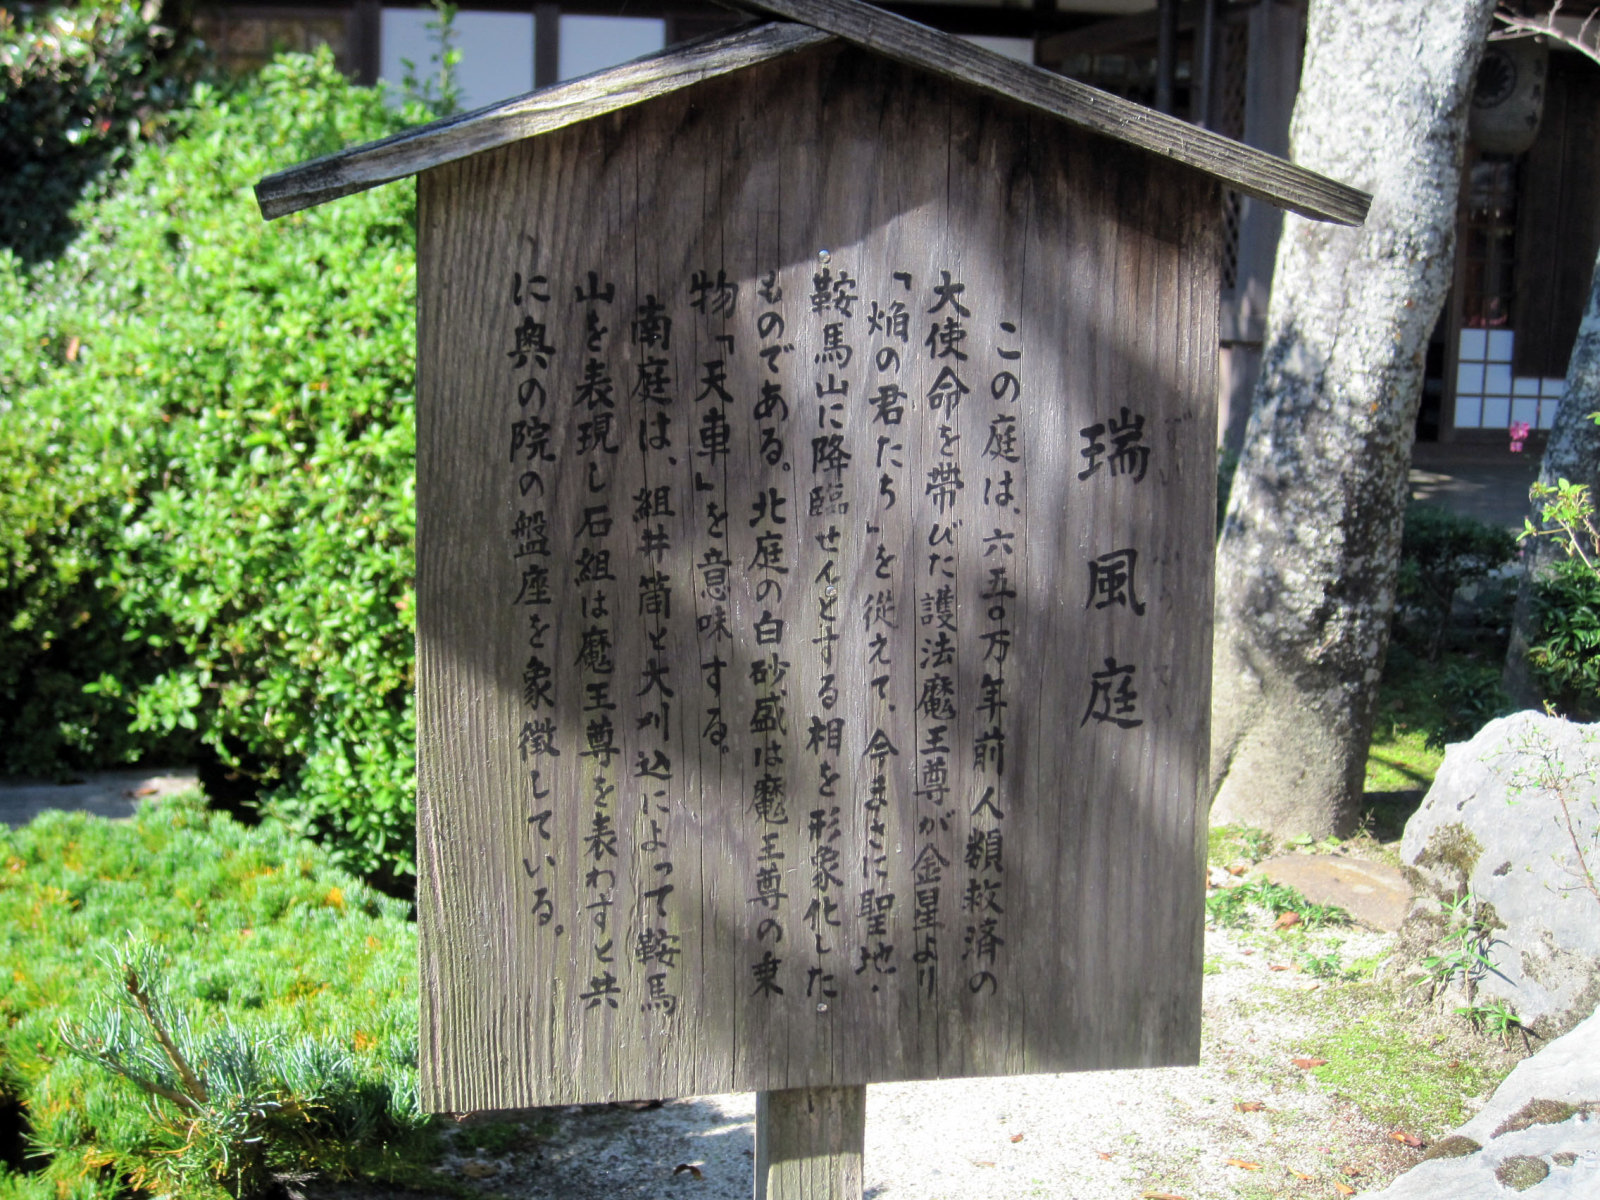 瑞風庭
ずいふうてい
この庭は、六五〇万年前人類救済の
大使命を帯びた護法魔王尊が金星より
「焔の君たち」を従えて、今まさに聖地・
鞍馬山に降臨せんとする相を形象化した
ものである。北庭の白砂盛は魔王尊の乗
物「天車」を意味する。
南庭は、組井筒と大刈込によって鞍馬
山を表現し石組は魔王尊を表わすと共
に奥の院の盤座を象徴している。